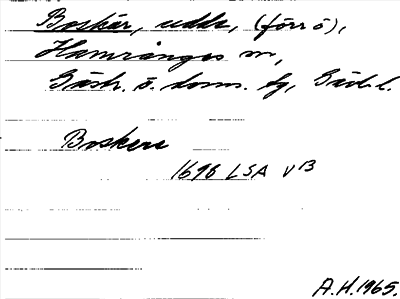 Boskär, udde, (förr ö),
Hamrånges sn,
Gästr. ö. doms. hg, Gävl. l.
Boskere
1696 LSA V 13
A.H. 1965.